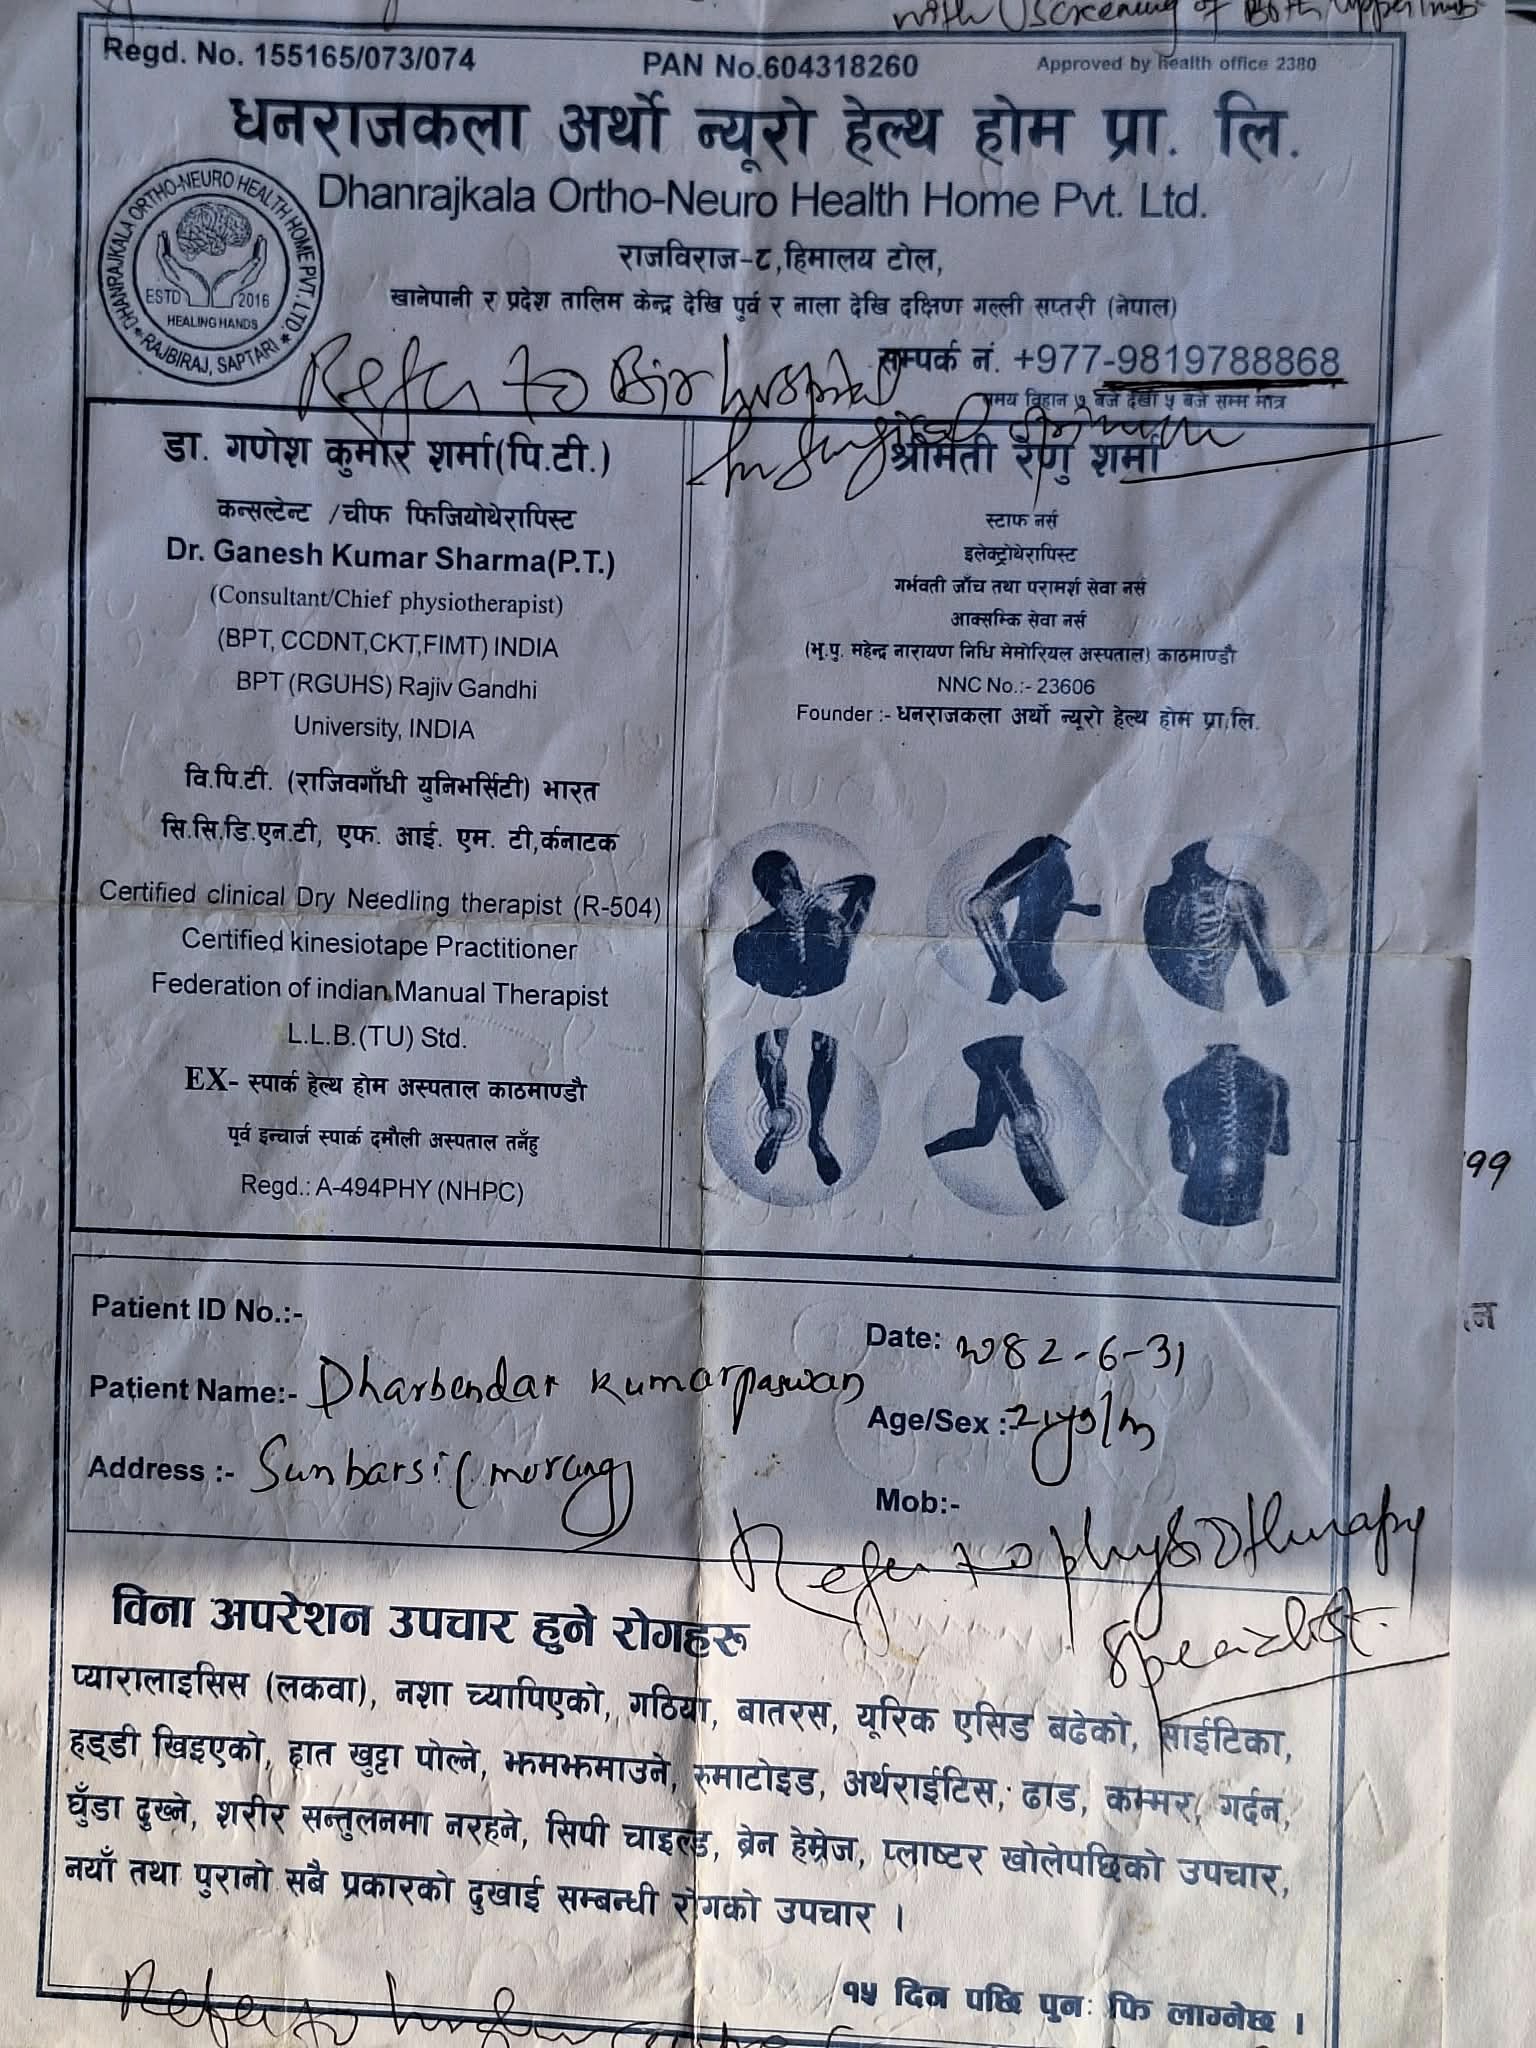 with screening of Both upper limb
Regd. No. 155165/073/074
PAN No.604318260
Approved by health office 2380
धनराजकला अर्थो न्यूरो हेल्थ होम प्रा. लि.
Dhanrajkala Ortho-Neuro Health Home Pvt. Ltd.
DHANRAJKALA ORTHO-NEURO HEALTH HOME PVT. LTD.
ESTD 2016
HEALING HANDS
RAJBIRAJ, SAPTARI
राजविराज-८,हिमालय टोल,
खानेपानी र प्रदेश तालिम केन्द्र देखि पुर्व र नाला देखि दक्षिण गल्ली सप्तरी (नेपाल)
सम्पर्क नं. +977-9819788868
समय विहान ७ बजे देखी ५ बजे सम्म मात्र
Refer to Bir hospital
डा. गणेश कुमार शर्मा(पि.टी.)
कन्सल्टेन्ट /चीफ फिजियोथेरापिस्ट
Dr. Ganesh Kumar Sharma(P.T.)
(Consultant/Chief physiotherapist)
(BPT, CCDNT,CKT,FIMT) INDIA
BPT (RGUHS) Rajiv Gandhi
University, INDIA
वि.पि.टी. (राजिवगाँधी युनिभर्सिटी) भारत
सि.सि.डि.एन.टी, एफ. आई. एम. टी,र्कनाटक
Certified clinical Dry Needling therapist (R-504)
Certified kinesiotape Practitioner
Federation of indian Manual Therapist
L.L.B.(TU) Std.
EX- स्पार्क हेल्थ होम अस्पताल काठमाण्डौ
पूर्व इन्चार्ज स्पार्क दमौली अस्पताल तनँहु
Regd.: A-494PHY (NHPC)
श्रीमती रेणु शर्मा
स्टाफ नर्स
इलेक्ट्रोथेरापिस्ट
गर्भवती जाँच तथा परामर्श सेवा नर्स
आक्सम्कि सेवा नर्स
(भू.पु. महेन्द्र नारायण निधि मेमोरियल अस्पताल) काठमाण्डौ
NNC No.:- 23606
Founder :- धनराजकला अर्थो न्यूरो हेल्थ होम प्रा.लि.
99
न
Patient ID No.:-
Date: 2082-6-31
Patient Name:- Dharbendar Kumar paswan
Age/Sex :- 21yrs/m
Address :- Sunbarsi (morang)
Mob:-
Refer to physiotherapy
specialist.
विना अपरेशन उपचार हुने रोगहरू
प्यारालाइसिस (लकवा), नशा च्यापिएको, गठिया, बातरस, यूरिक एसिड बढेको, साईटिका,
हड्डी खिइएको, हात खुट्टा पोल्ने, झमझमाउने, रुमाटोइड, अर्थराईटिस, ढाड, कम्मर, गर्दन,
घुँडा दुख्ने, शरीर सन्तुलनमा नरहने, सिपी चाइल्ड, ब्रेन हेम्रेज, प्लाष्टर खोलेपछिको उपचार,
नयाँ तथा पुरानो सबै प्रकारको दुखाई सम्बन्धी रोगको उपचार ।
१५ दिन पछि पुनः फि लाग्नेछ ।
Refer to